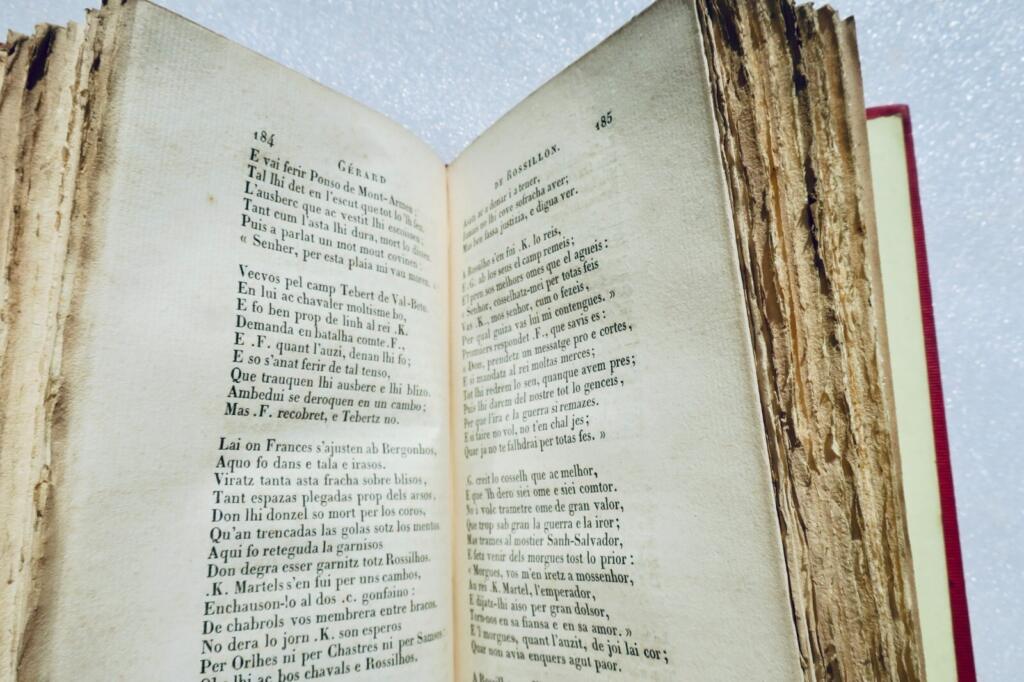 184
GÉRARD
E vai ferir Ponso de Mont-Armes;
Tal lhi det en l'escut que tot lo 'lh fen.
L'ausberc que ac vestit lhi escoissen;
Tant cum l'asta lhi dura, mort lo
Puis a parlat un mot mout covinen:
« Senher, per esta plaia mi vau
Vecvos pel camp Tebert de Val-Beto.
En lui ac chavaler moltisme bo,
E fo ben prop de linh al rei .K.
Demanda en batalha comte .F.,
E .F. quant l'auzi, denan lhi fo;
E so s'anat ferir de tal tenso,
Que trauquen lhi ausberc e lhi blizo.
Ambedui se deroquen en un cambo;
Mas .F. recobret, e Tebertz no.
Lai on Frances s'ajusten ab Bergonhos,
Aquo fo dans e tala e irasos.
Viratz tanta asta fracha sobre blisos,
Tant espazas plegadas prop dels arsos,
Don lhi donzel so mort per los coros,
Qu'an trencadas las golas sotz los mentos
Aqui fo reteguda la garnisos
Don degra esser garnitz totz Rossilhos.
.K. Martels s'en fui per uns cambos,
Enchauson-lo al dos .c. gonfaino:
De chabrols vos membrera entre bracos.
No dera lo jorn .K. son esperos
Per Orlhes ni per Chastres ni per
lhi ac bos chavals e Rossilhos.
185
DE ROSSILLON.
ac a donar i a tener,
no lhi cove sofracha aver;
Mas ben fassa justizia, e digua ver.
A Rossilho s'en fui .K. lo reis,
E .G. ab los seus el camp remeis;
E'l pren sos melhors omes que el agueis:
« Senhor, cosselhatz-mei per totas feis
Vas .K., mos senhor, cum o fezeis,
Per qual guiza vas lui mi contengues. »
Premiers respondet .F., que savis es:
« Dom, prendetz un messatge pro e cortes,
E si mandatz al rei moltas merces;
Tot lhi redrem lo seu, quanque avem pres;
Puis lhi darem del nostre tot lo genceis,
Per que l'ira e la guerra si remazes.
E si faire no vol, no t'en chal jes;
Quar ja no te falhdrai per totas fes. »
.G. creit lo cosselh que ac melhor,
E que 'lh dero siei ome e siei comtor.
No i volc trametre ome de gran valor,
Que trop sab gran la guerra e la iror;
Mas trames al mostier Sanh-Salvador,
E fetz venir dels morgues tost lo prior:
« Morgues, vos m'en iretz a mossenhor,
Au rei .K. Martel, l'emperador,
E dijatz-lhi aiso per gran dolsor,
Torn-nos en sa fiansa e en sa amor. »
E'l morgues, quant l'auzit, de joi lai cor;
Quar non avia enquers agut paor.